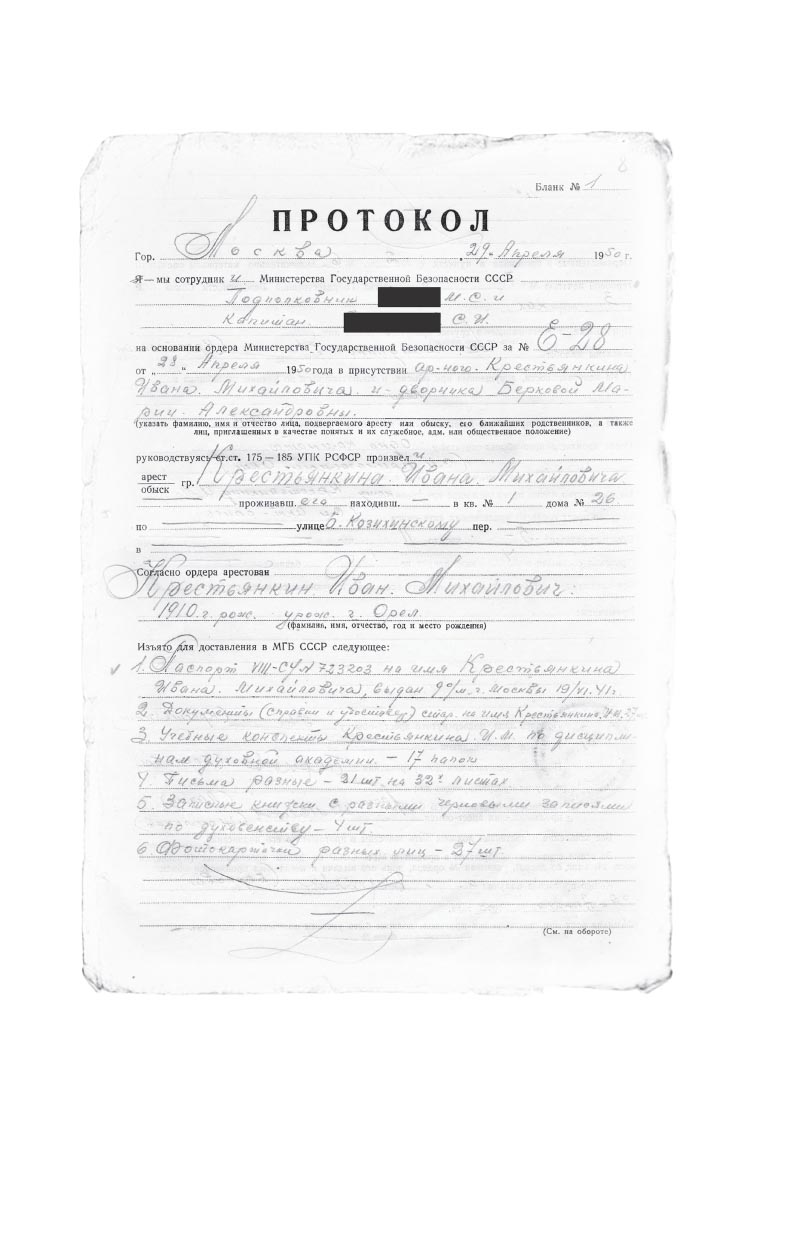 Бланк № 1
ПРОТОКОЛ
Гор. Москва, 29. Апреля 1950 г.
Я — мы сотрудник и Министерства Государственной Безопасности СССР
Подполковник М.С. и
Капитан С.И.
на основании ордера Министерства Государственной Безопасности СССР за № Е-28
от „28“ Апреля 1950 года в присутствии ар-ного. Крестьянкина
Ивана. Михайловича. и дворника Берковой Ма-
рии. Александровны.
(указать фамилию, имя и отчество лица, подвергаемого аресту или обыску, его ближайших родственников, а также
лиц, приглашенных в качестве понятых и их служебное, адм. или общественное положение)
руководствуясь ст.ст. 175 — 185 УПК РСФСР произвел и
арест
обыск гр. Крестьянкина. Ивана. Михайловича
проживавш. его находивш. — в кв. № 1 дома № 26
по улице Б. Козихинскому пер.
в
Согласно ордера арестован
Крестьянкин Иван. Михайлович.
1910. г. рож. урож. г. Орел.
(фамилия, имя, отчество, год и место рождения)
Изъято для доставления в МГБ СССР следующее:
1. Паспорт VIII-СУ № 723203 на имя Крестьянкина
Ивана. Михайловича, выдан 9 о/м. г. Москвы 19/VI. 41г
2. Документы (справки и удостовер) на имя Крестьянкина. И.М.
3. Учебные конспекты Крестьянкина И.М. по дисципли-
нам духовной академии. — 17 папок
4. Письма разные — 31 шт на 32х листах
5. Записные книжки с разными черновыми записями
по духовенству — 4 шт
6. Фотокарточки разных лиц — 27 шт.
(См. на обороте)